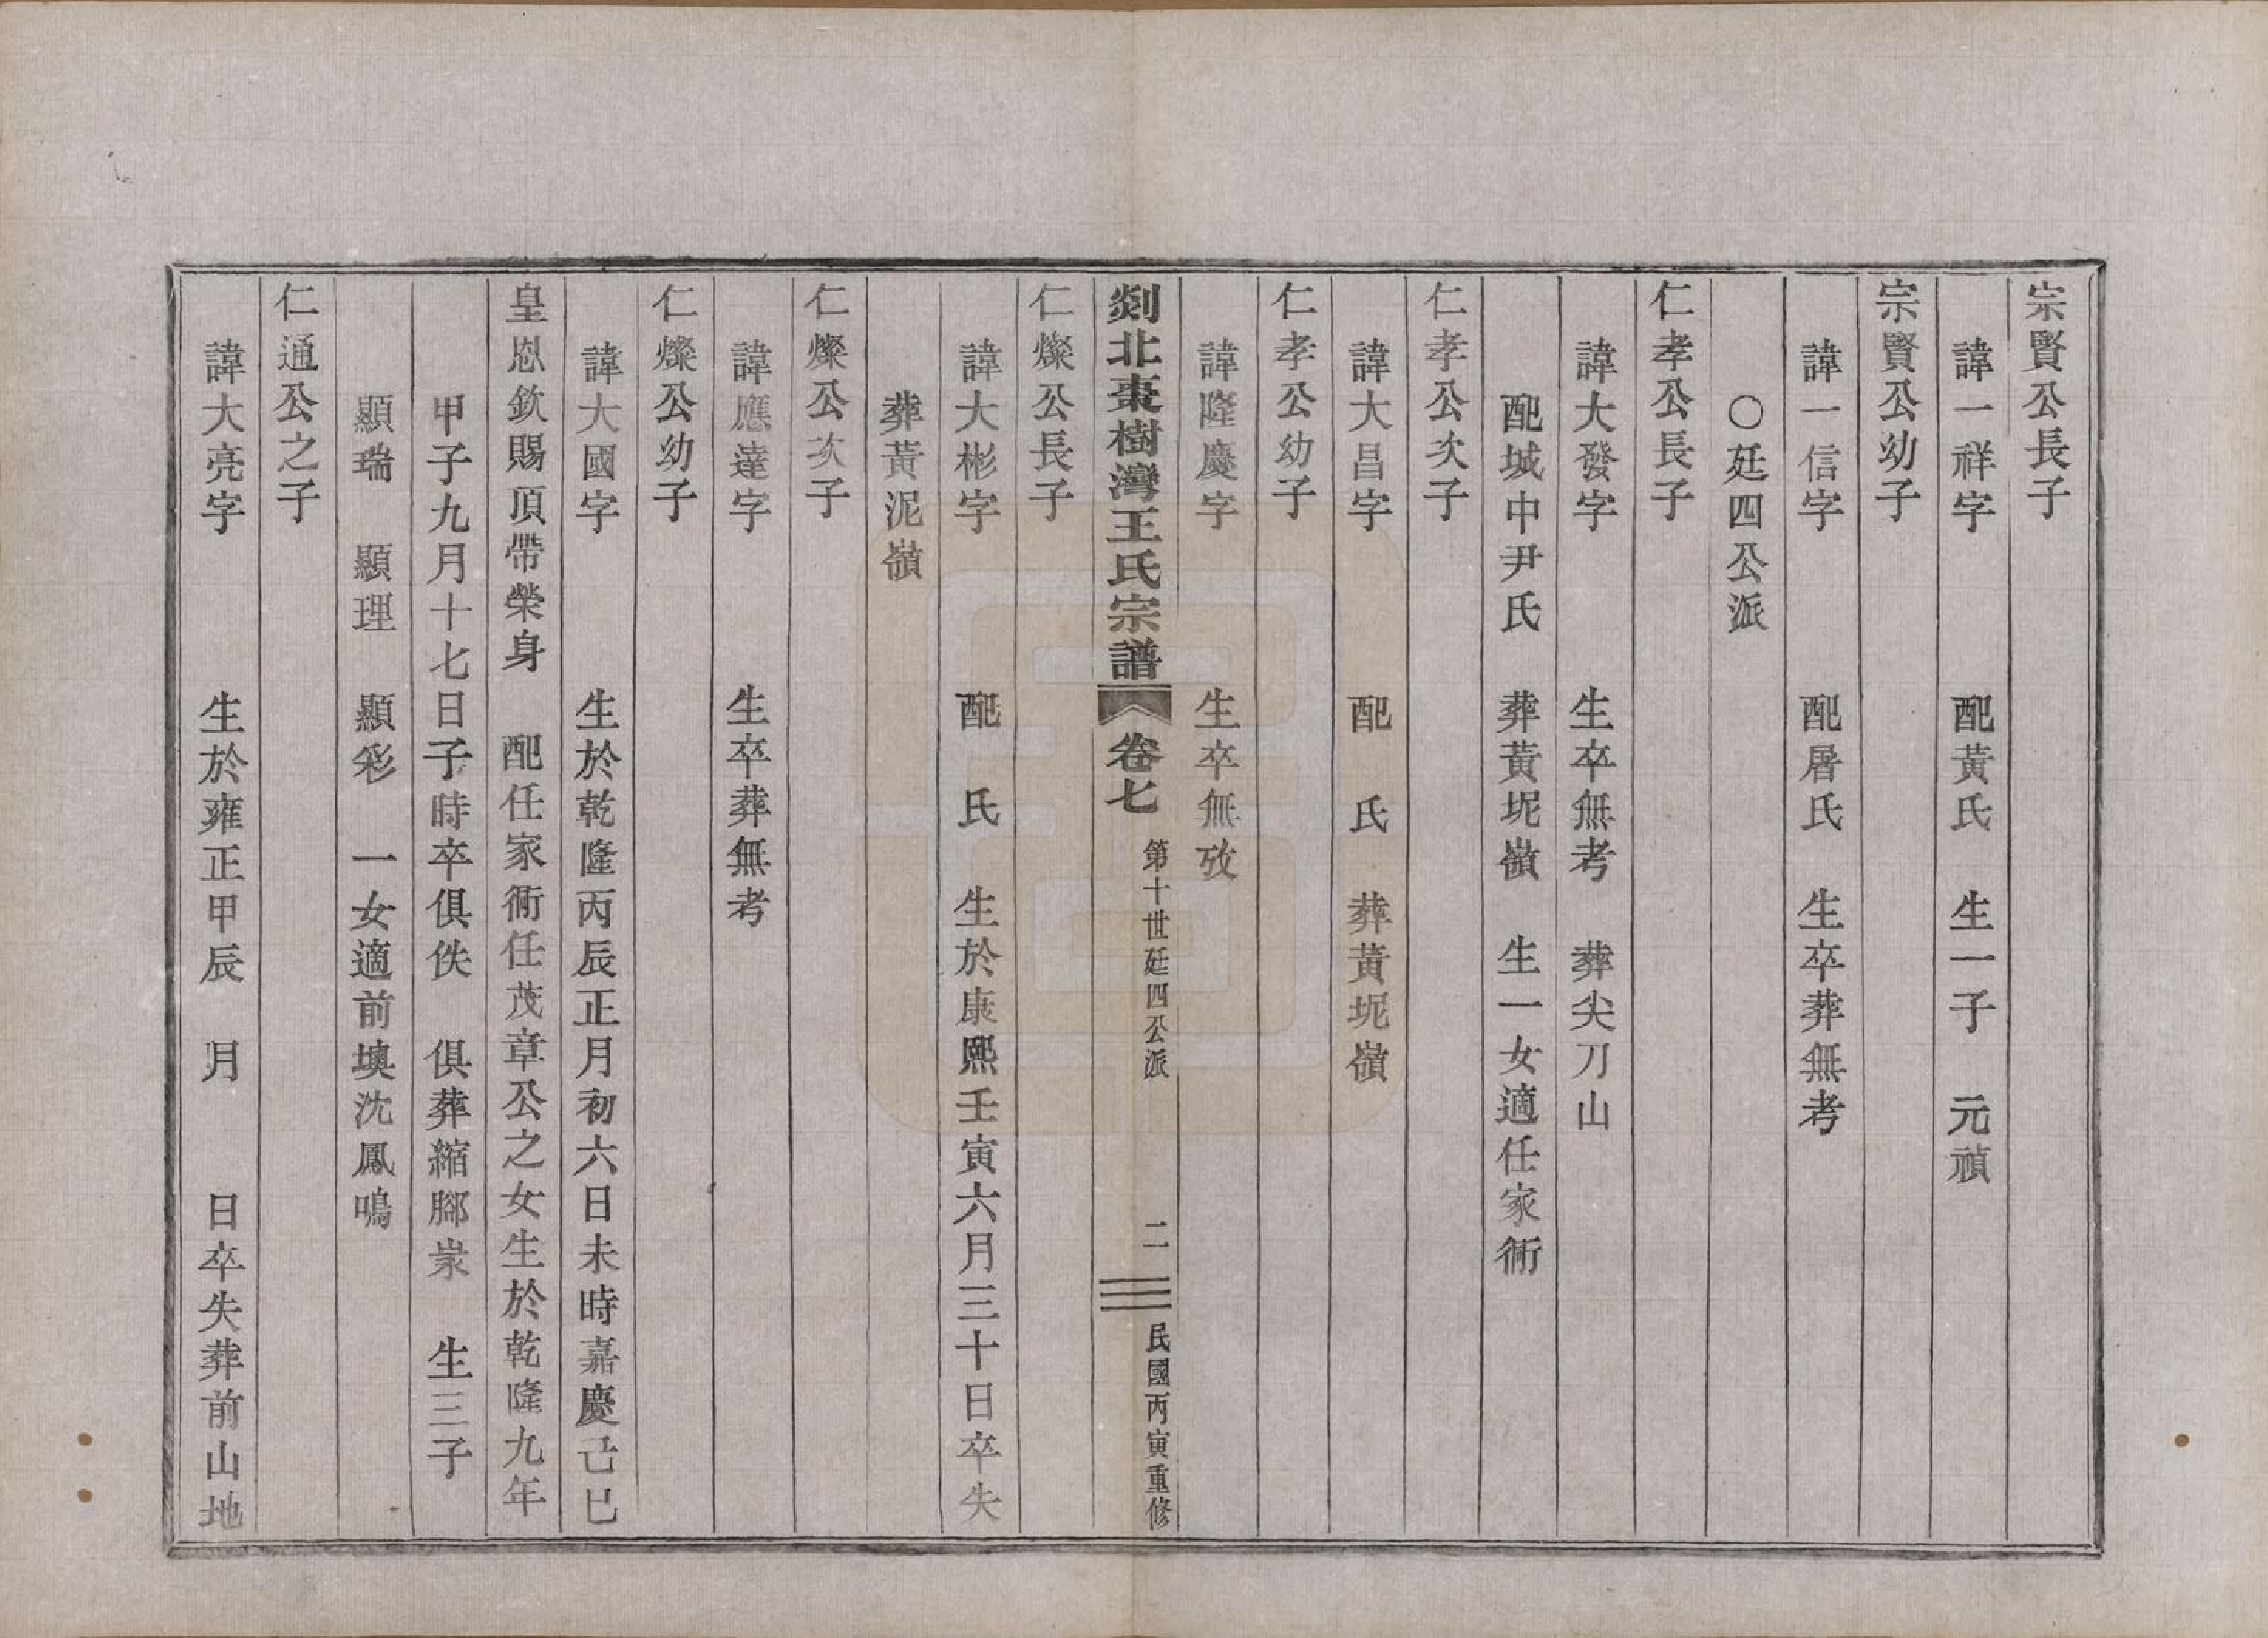 宗賢公長子
諱一祥字　配黃氏　生一子　元禎
宗賢公幼子
諱一信字　配屠氏　生卒葬無考
○廷四公派
仁孝公長子
諱大發字　生卒無考　葬尖刀山
配城中尹氏　葬黃坭嶺　生一女適任家衕
仁孝公次子
諱大昌字　配　氏　葬黃坭嶺
仁孝公幼子
諱隆慶字　生卒無攷
剡北棗樹灣王氏宗譜　卷七　第十世廷四公派　二　民國丙寅重修
仁燦公長子
諱大彬字　配　氏　生於康熙壬寅六月三十日卒失
葬黃泥嶺
仁燦公次子
諱應達字　生卒葬無考
仁燦公幼子
諱大國字　生於乾隆丙辰正月初六日未時嘉慶己巳
皇恩欽賜頂帶榮身　配任家衕任茂章公之女生於乾隆九年
甲子九月十七日子時卒俱佚　俱葬縮腳㟁　生三子
顯瑞　顯理　顯彩　一女適前㙪沈鳳鳴
仁通公之子
諱大亮字　生於雍正甲辰　月　日卒失葬前山地